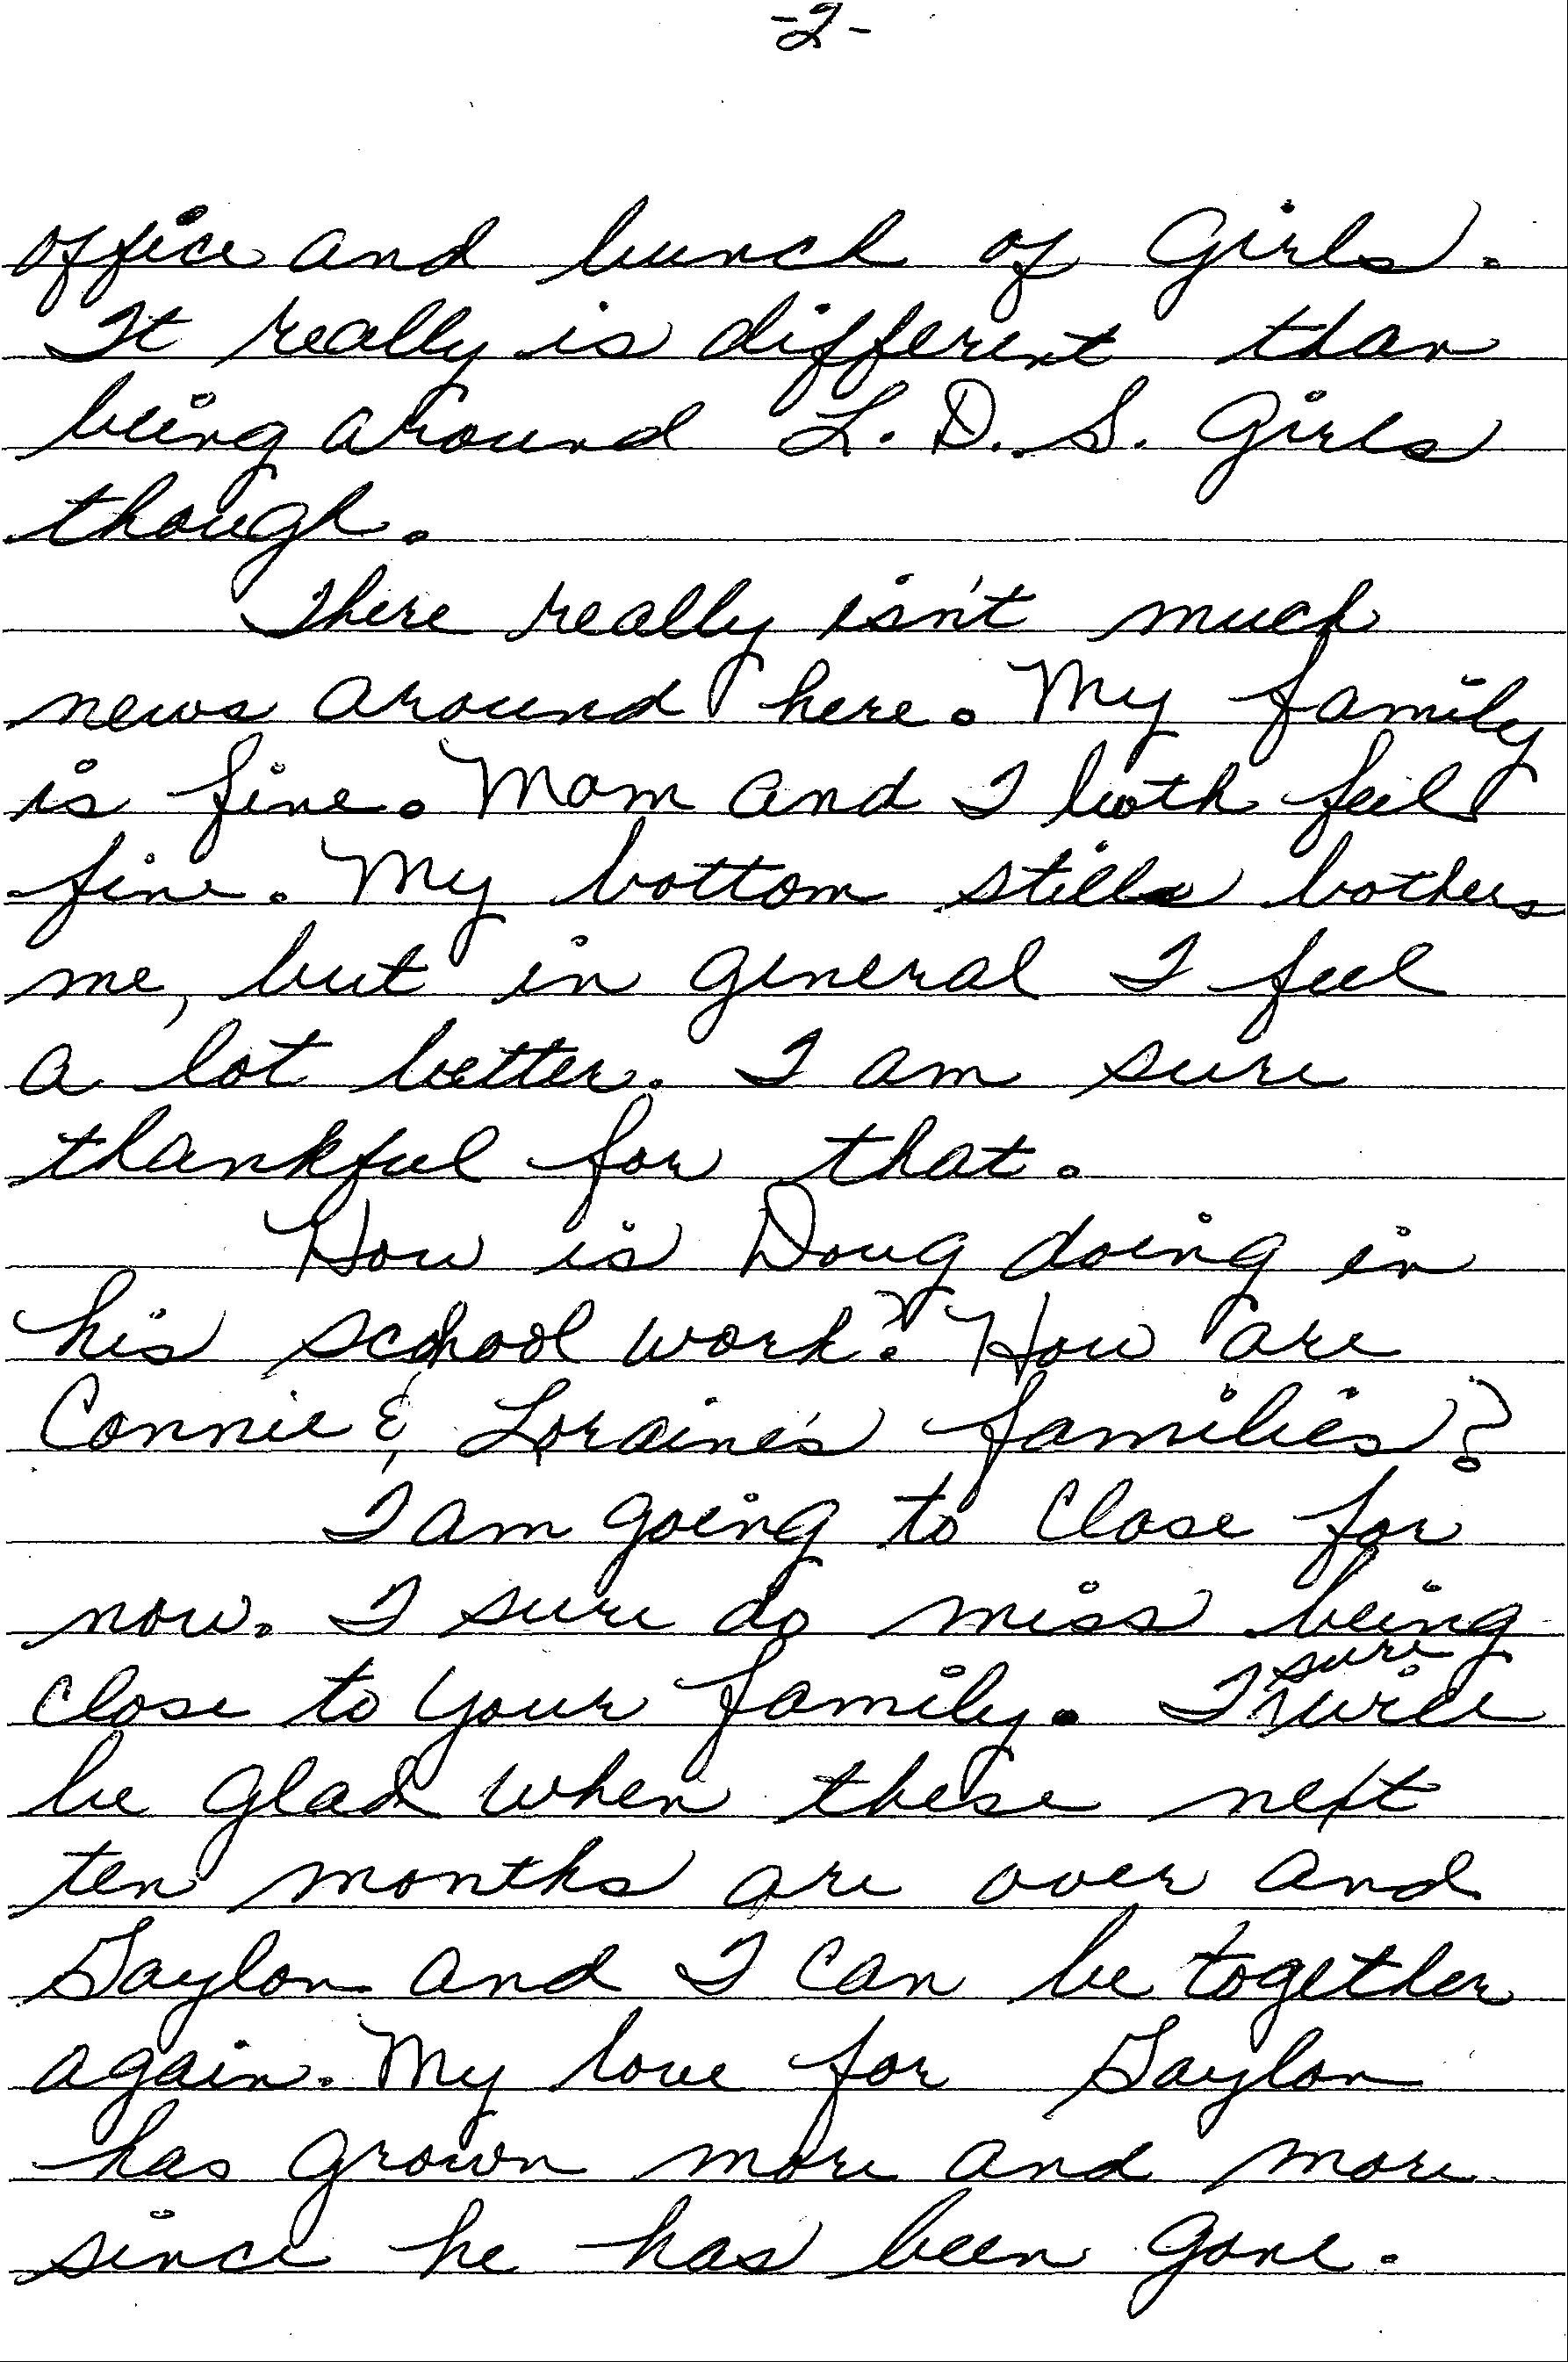 -2-
office and bunch of Girls.
It really is different than
being around L.D.S. Girls
though.
There really isn't much
news around here. My family
is fine. Mom and I both feel
fine. My bottom still bothers
me, but in general I feel
a lot better. I am sure
thankful for that.
How is Doug doing in
his school work? How are
Connie & Loraine's families?
I am going to close for
now. I sure do miss being
close to your family. I sure will
be glad when these next
ten months are over and
Gaylon and I can be together
again. My love for Gaylon
has grown more and more
since he has been gone.